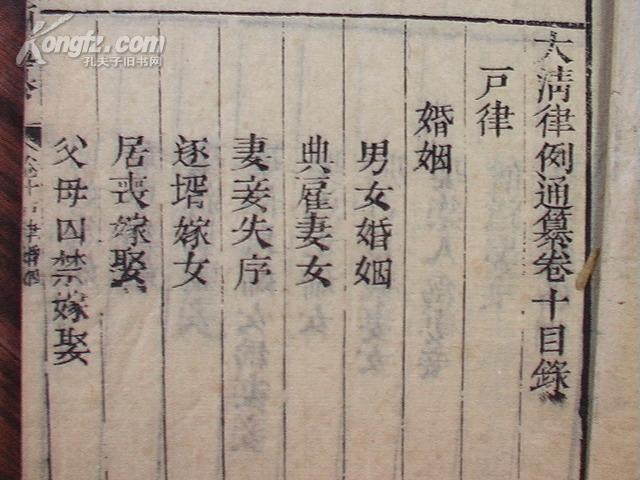 大清律例通纂卷十目錄
戸律
婚姻
男女婚姻
典雇妻女
妻妾失序
逐壻嫁女
居喪嫁娶
父母囚禁嫁娶
Kongfz.com
孔夫子旧书网